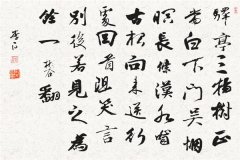 驛亭三楊樹正
當白下門吳烟
暝長條漢水齧
古根向來送行
處回首阻笑言
別後若見之為
余一攀翻